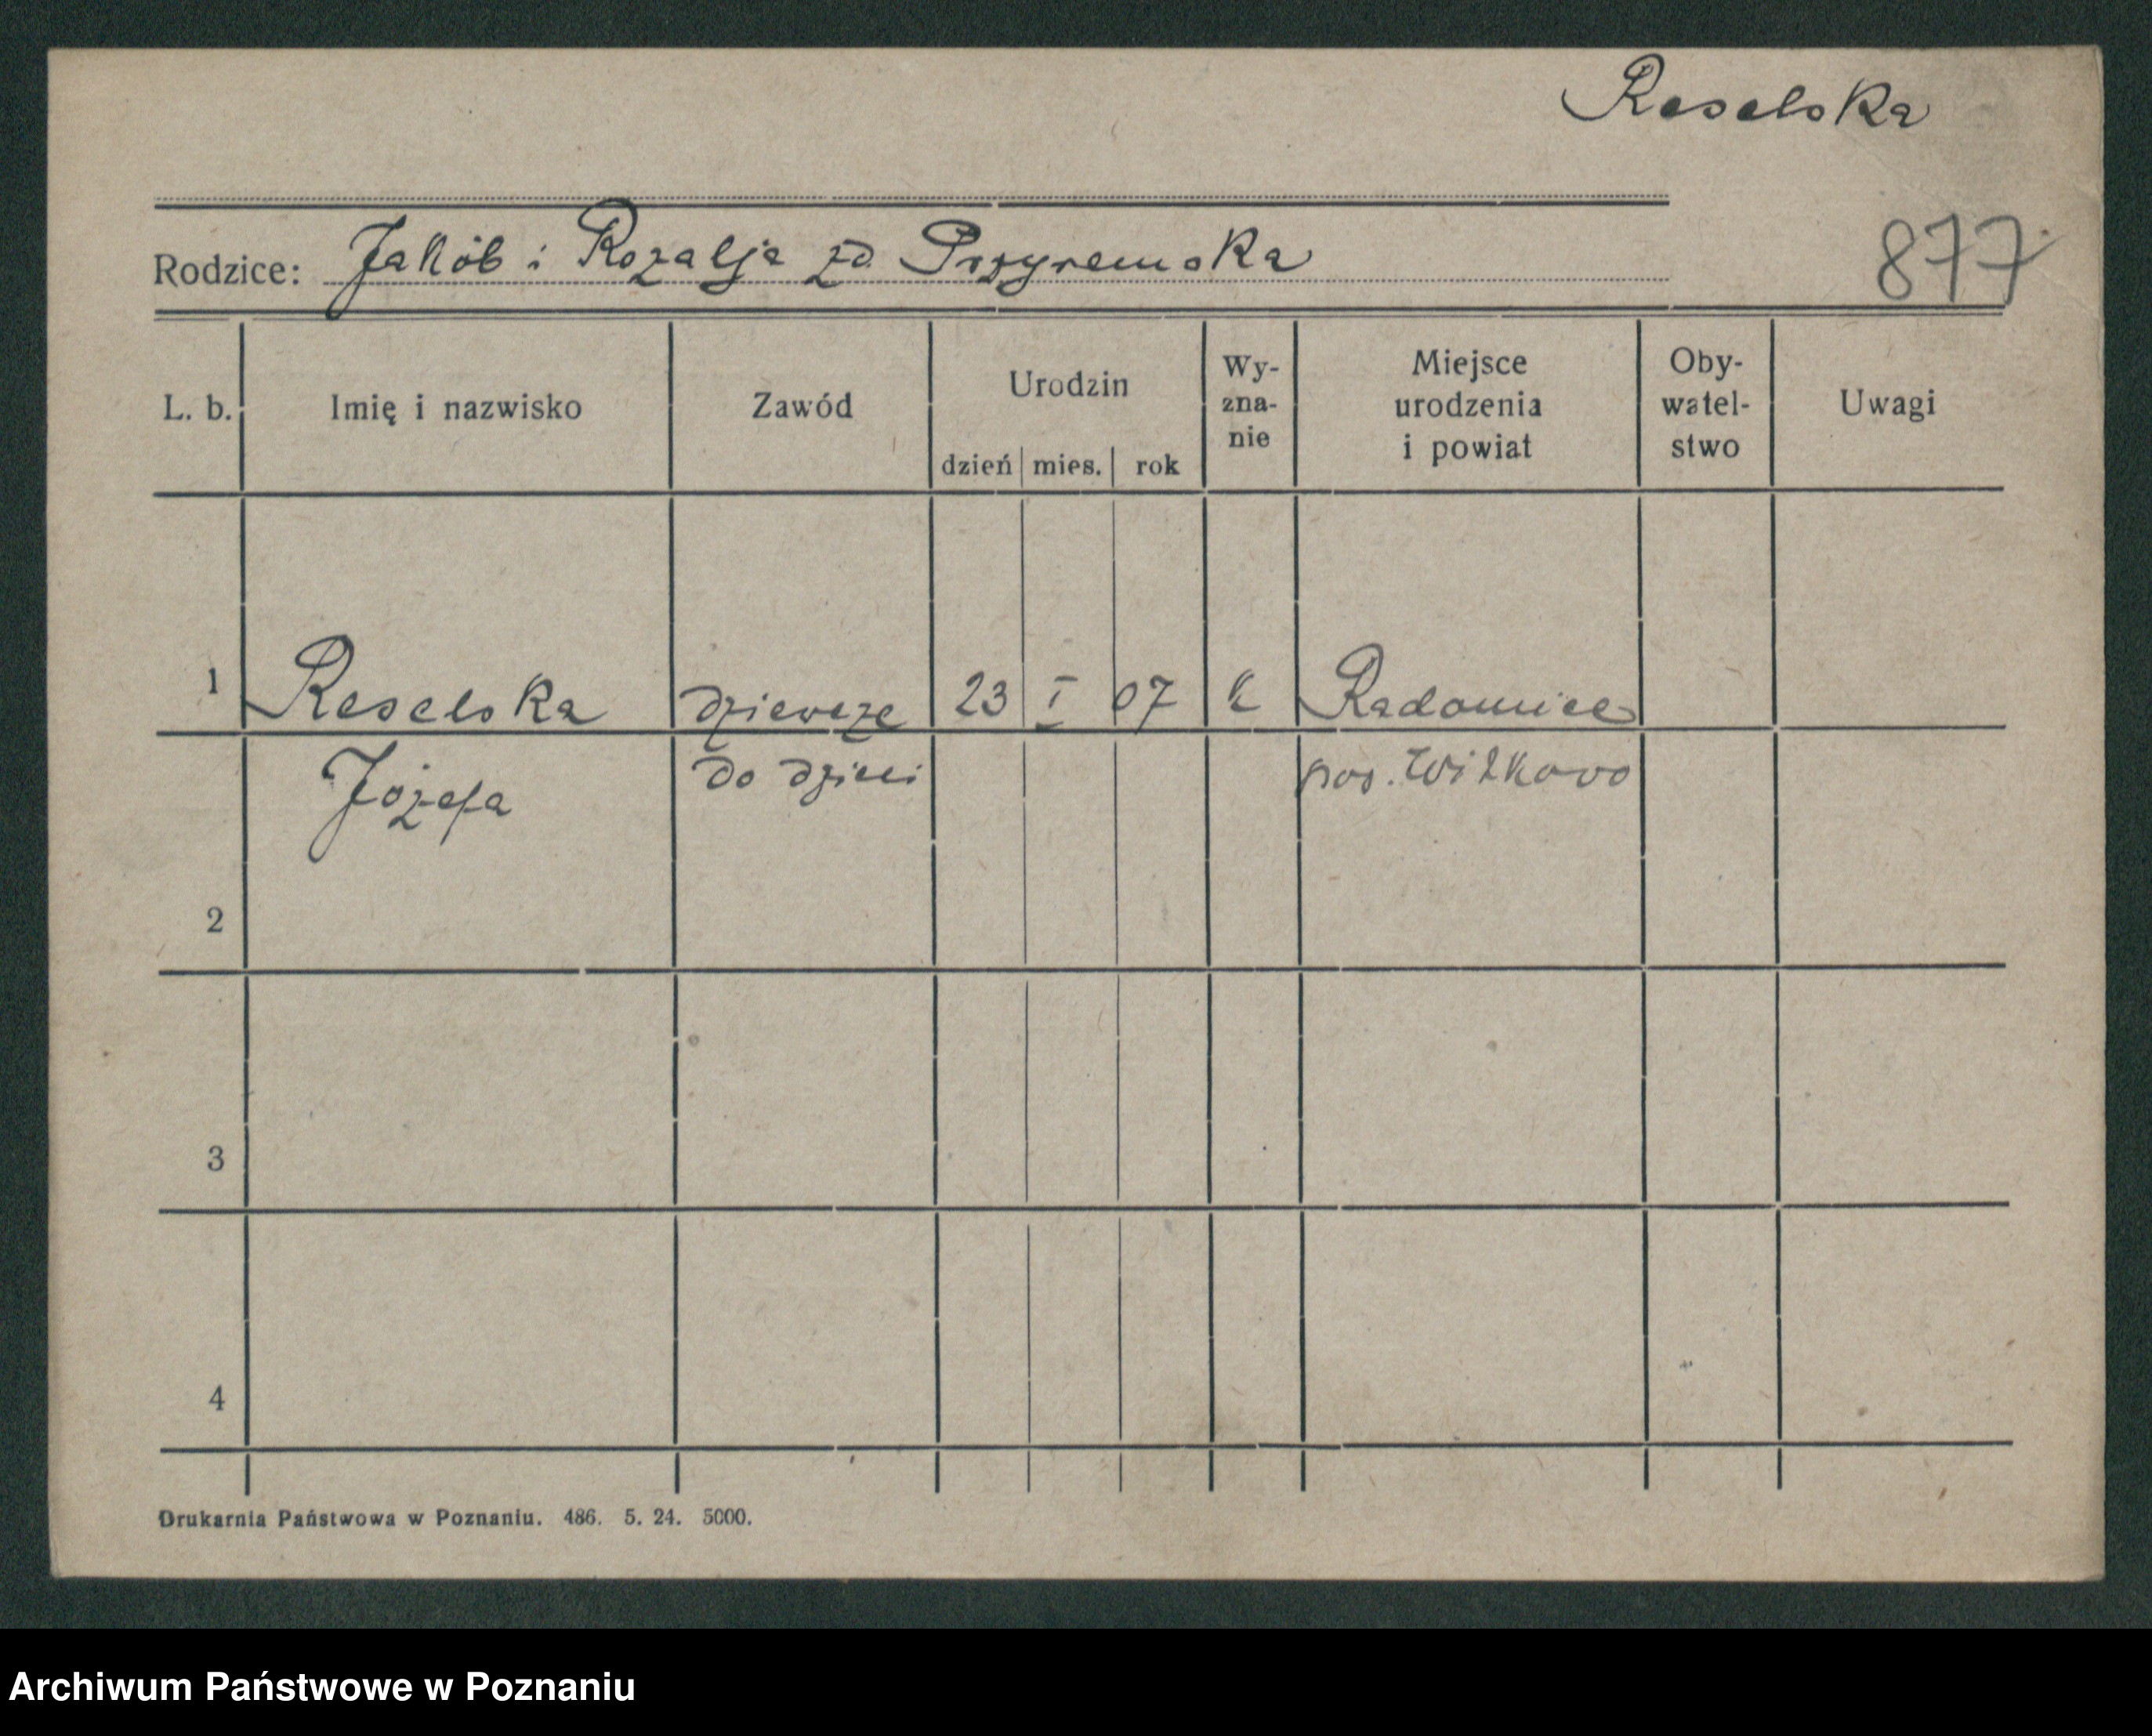 Reselska
Rodzice: Jakób i Rozalja zd. Przyremska
877
L. b. Imię i nazwisko Zawód Urodzin dzień mies. rok Wy-zna-nie Miejsce urodzenia i powiat Oby-watel-stwo Uwagi
1 Reselska dziewczę 23 I 07 k Radomice
Józefa do dzieci pow. Witkowo
2
3
4
Drukarnia Państwowa w Poznaniu. 486. 5. 24. 5000.
Archiwum Państwowe w Poznaniu